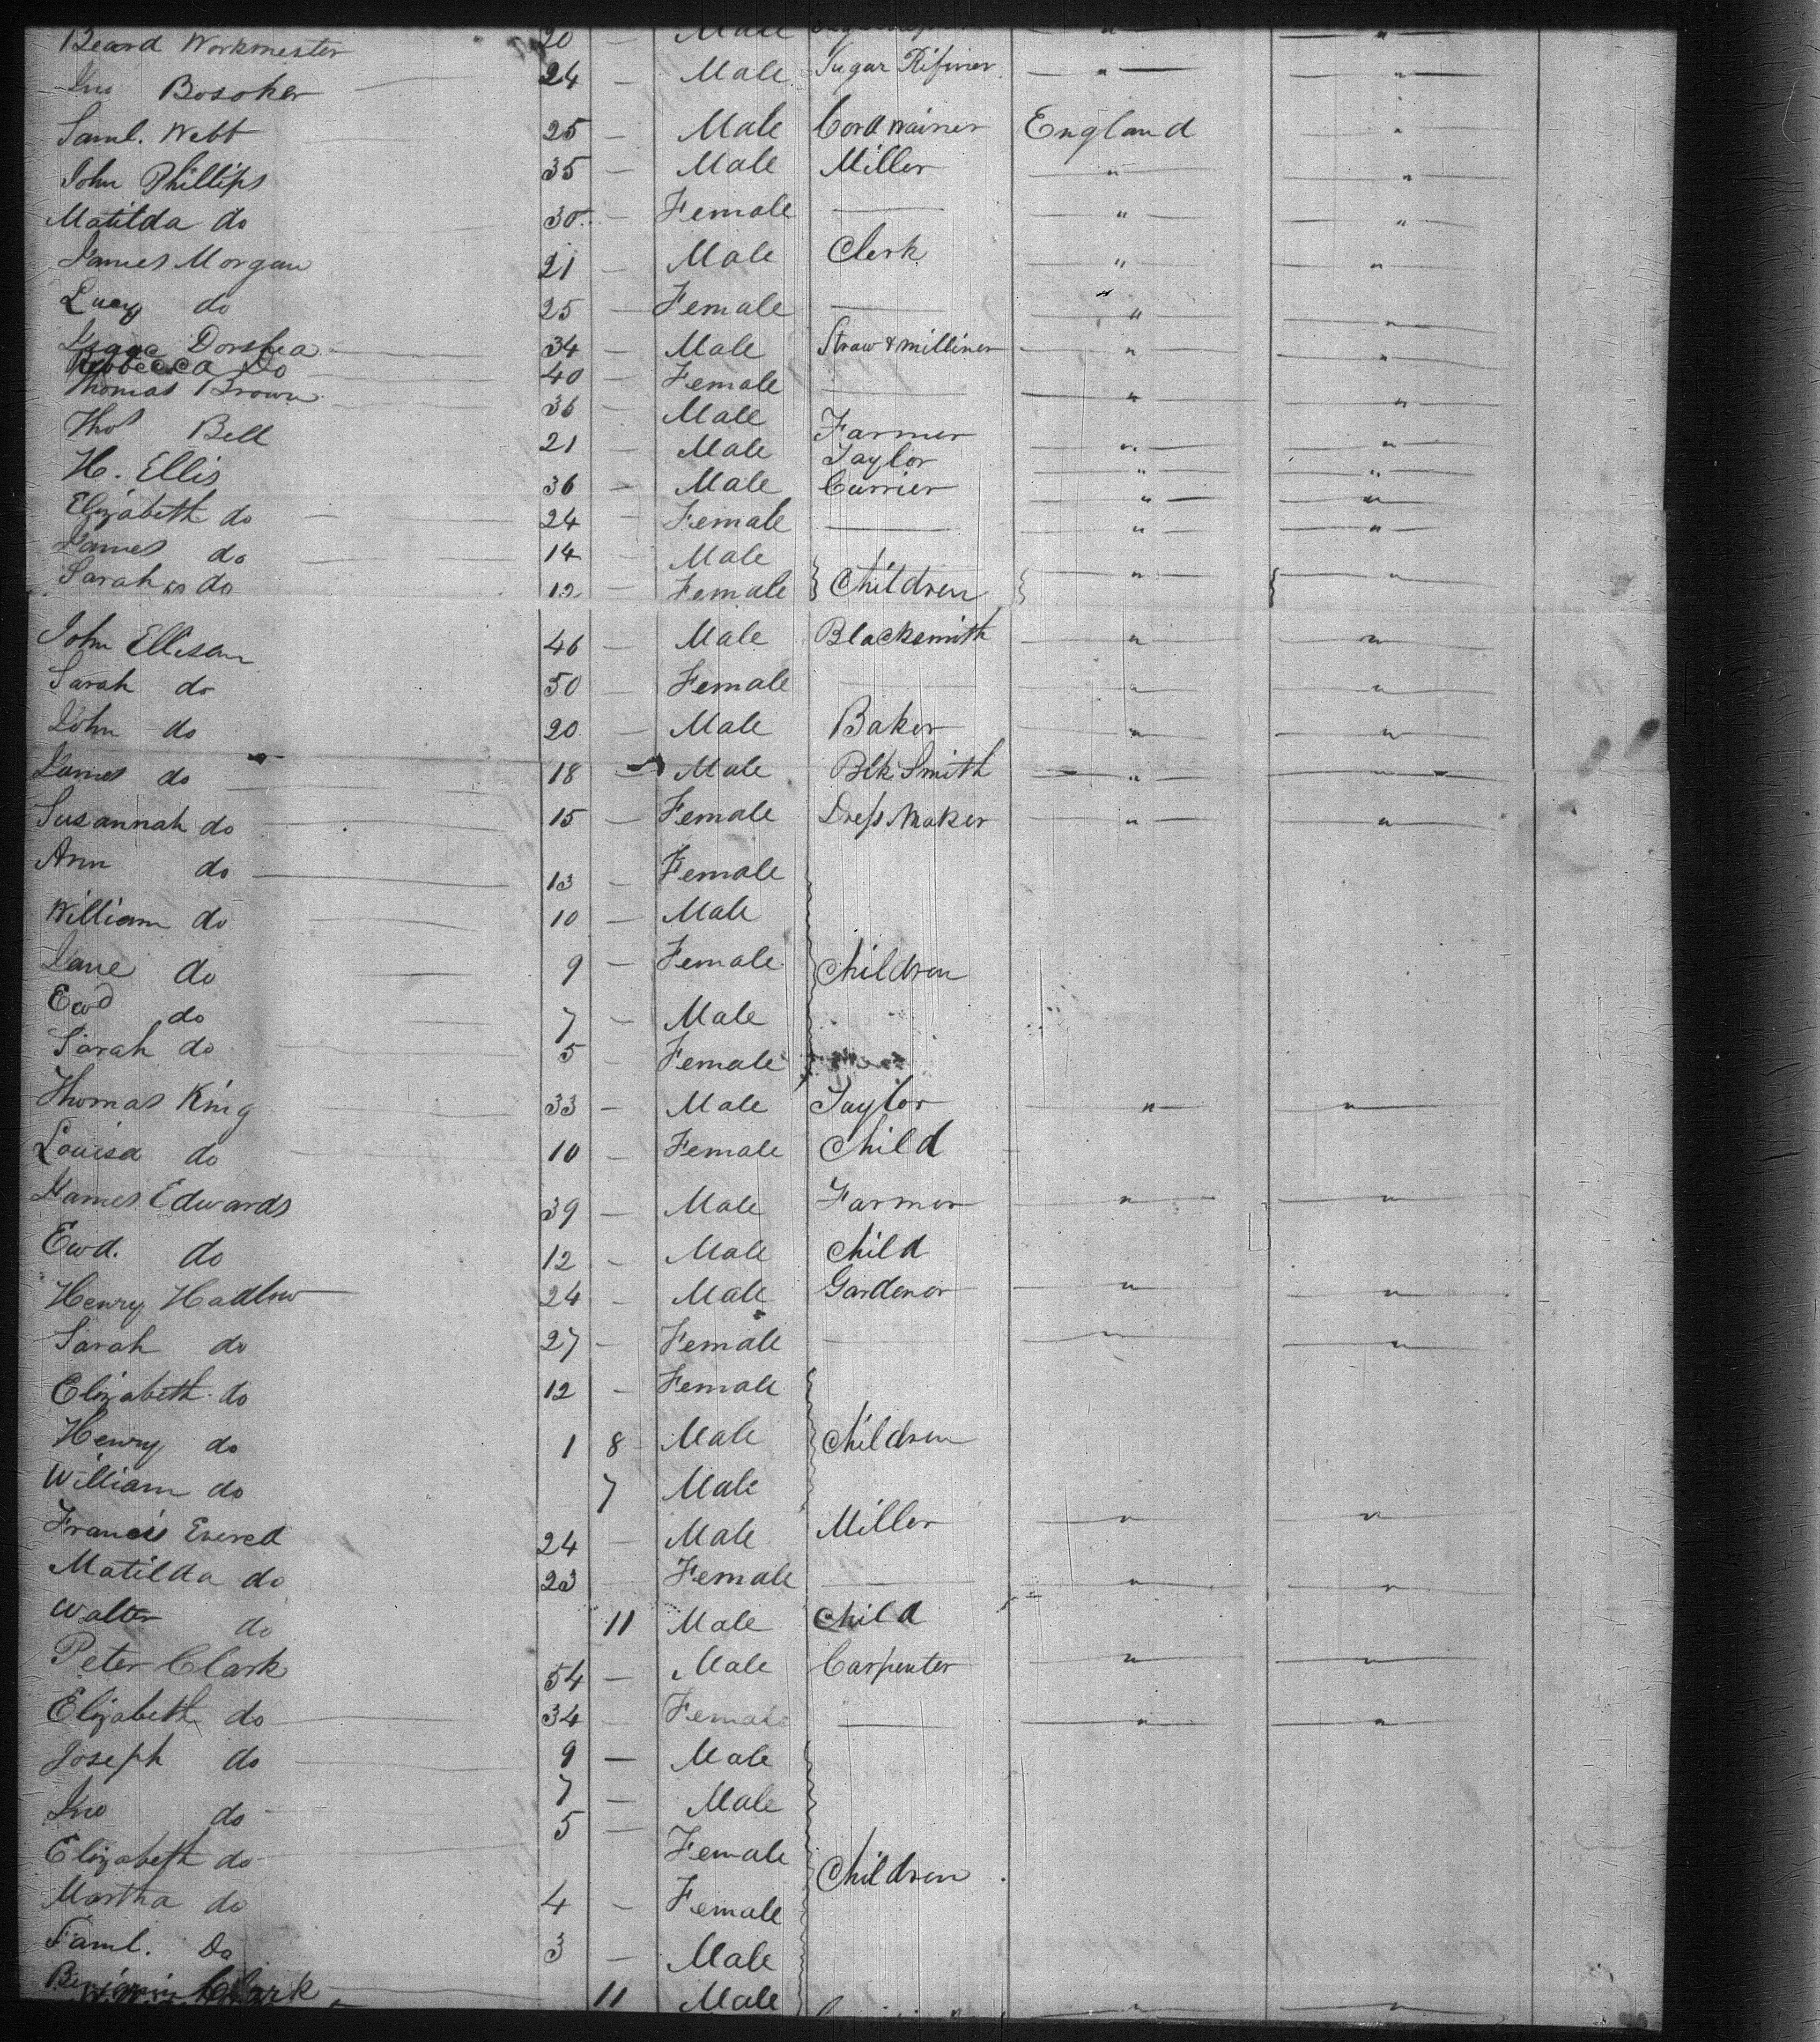 Beard Workmester 20 — Male " "
Jno Bosoker 24 — Male Sugar Rifiner " "
Saml. Webt 25 — Male Cordwainer England "
John Phillips 35 — Male Miller " "
Matilda do 30 — Female — " "
James Morgan 21 — Male Clerk " "
Lucy do 25 — Female — " "
Isaac Dorshea 34 — Male Straw & milliner " "
Rebbecca Do 40 — Female — " "
Thomas Brown 36 — Male Farmer " "
Thos Bell 21 — Male Taylor " "
H. Ellis 36 — Male Currier " "
Elizabeth do 24 — Female — " "
James do 14 — Male
Sarah do 12 Female } Children { " { "
John Ellison 46 — Male Blacksmith " "
Sarah do 50 — Female — " "
John do 20 — Male Baker " "
James do 18 — Male Blk Smith " "
Susannah do 15 — Female Dress Maker " "
Ann do 13 — Female
William do 10 — Male
Jane do 9 — Female Children
Ewd do 7 — Male
Sarah do 5 — Female
Thomas King 33 — Male Taylor " "
Louisa do 10 — Female Child
James Edwards 39 — Male Farmer " "
Ewd. do 12 — Male Child
Henry Hadlow 24 — Male Gardener " "
Sarah do 27 — Female — " "
Elizabeth do 12 — Female
Henry do 1 8 Male Children
William do 7 Male
Francis Evered 24 — Male Miller " "
Matilda do 23 Female — " "
Walter do 11 Male Child
Peter Clark 54 — Male Carpenter " "
Elizabeth do 34 Female — " "
Joseph do 9 — Male
Jno do 7 — Male
Elizabeth do 5 — Female Children
Martha do 4 — Female
Saml. Do 3 — Male
Benjamin Clark 11 Male " "